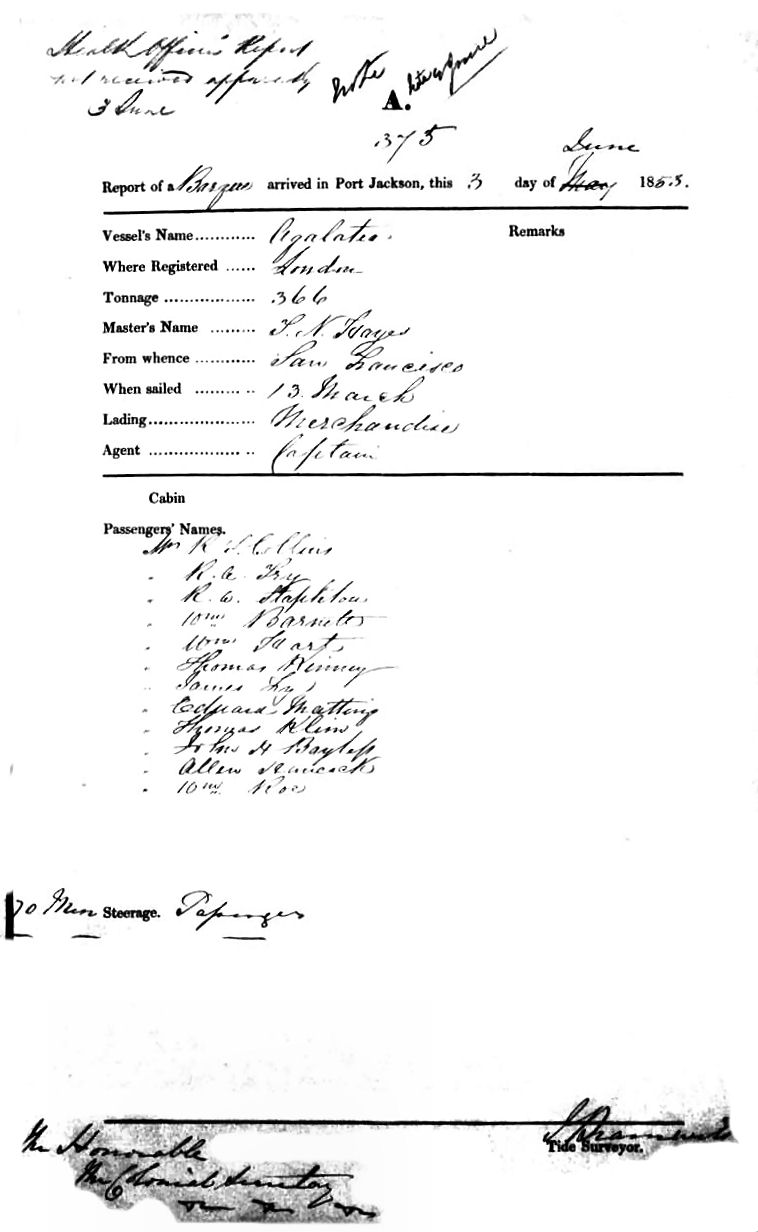 Health Officer's Report
not received apparently
3 June
Note
A.
375
June
Report of a Barque arrived in Port Jackson, this 3 day of May 1853.
Vessel's Name............ Agalatea. Remarks
Where Registered ...... London
Tonnage .................. 366
Master's Name ......... T. N. Hayes
From whence ............ San Francisco
When sailed ......... .. 13 March
Lading..................... Merchandise
Agent .................. .. Captain
Cabin
Passengers' Names.
Mr R S Collins
" R. A. Fry
" R. W. Stapleton
" Wm Barnett
" Wm Hart
" Thomas Kinney
" James
" Edward Matting
" Thomas Kline
" John H Bayless
" Allen Hancock
" Wm Roe
70 Men Steerage. Passenger
The Honorable
The Colonial Secretary
Tide Surveyor.